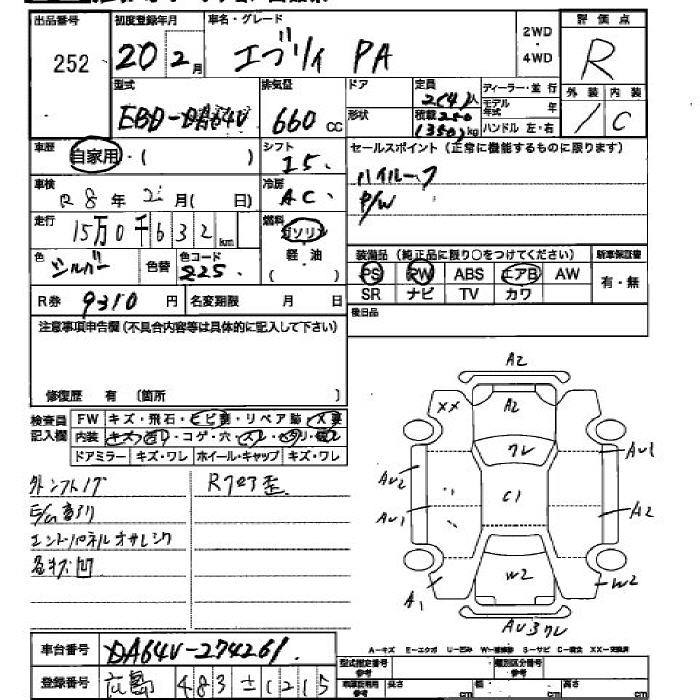 出品番号 252
初度登録年月 20 2月
車名・グレード エブリイ PA
2WD・4WD
評価点 R
型式 EBD-DA64V
排気量 660cc
ドア
形状
定員 2(4)人
積載 250(350)kg
ディーラー・並行
モデル年式 年
ハンドル 左・右
外装 内装 C
車歴 自家用・( )
シフト I5.
セールスポイント (正常に機能するものに限ります)
ハイルーフ
P/W
車検 R8年2月( 日)
冷房 AC
走行 15万0千632km
燃料 ガソリン 軽油 ( )
色 シルバー 色替 色コード 225
装備品 (純正品に限り○をつけてください)
PS PW ABS エアB AW
SR ナビ TV カワ
新車保証書 有・無
R券 9310円 名変期限 月 日
後日品
注意事項申告欄 (不具合内容等は具体的に記入して下さい)
修復歴 有 〔箇所 〕
検査員記入欄
FW キズ・飛石・ヒビ・リペア跡・X要
内装 キズ・コゲ・穴・スレ
ドアミラー キズ・ワレ ホイール・キャップ キズ・ワレ
R
A2
XX A2
クレ
AU2 AU1
C1
AU1 A2
W2 W2
A1
AU3 クレ
A-キズ E-エクボ U-凹み W-補修跡 S-サビ C-腐食 XX-交換済
車台番号 DA64V-274261
登録番号 広島 483 1215
型式指定番号 参考 類別区分番号 参考
参考 長さ cm 幅 cm 高さ cm